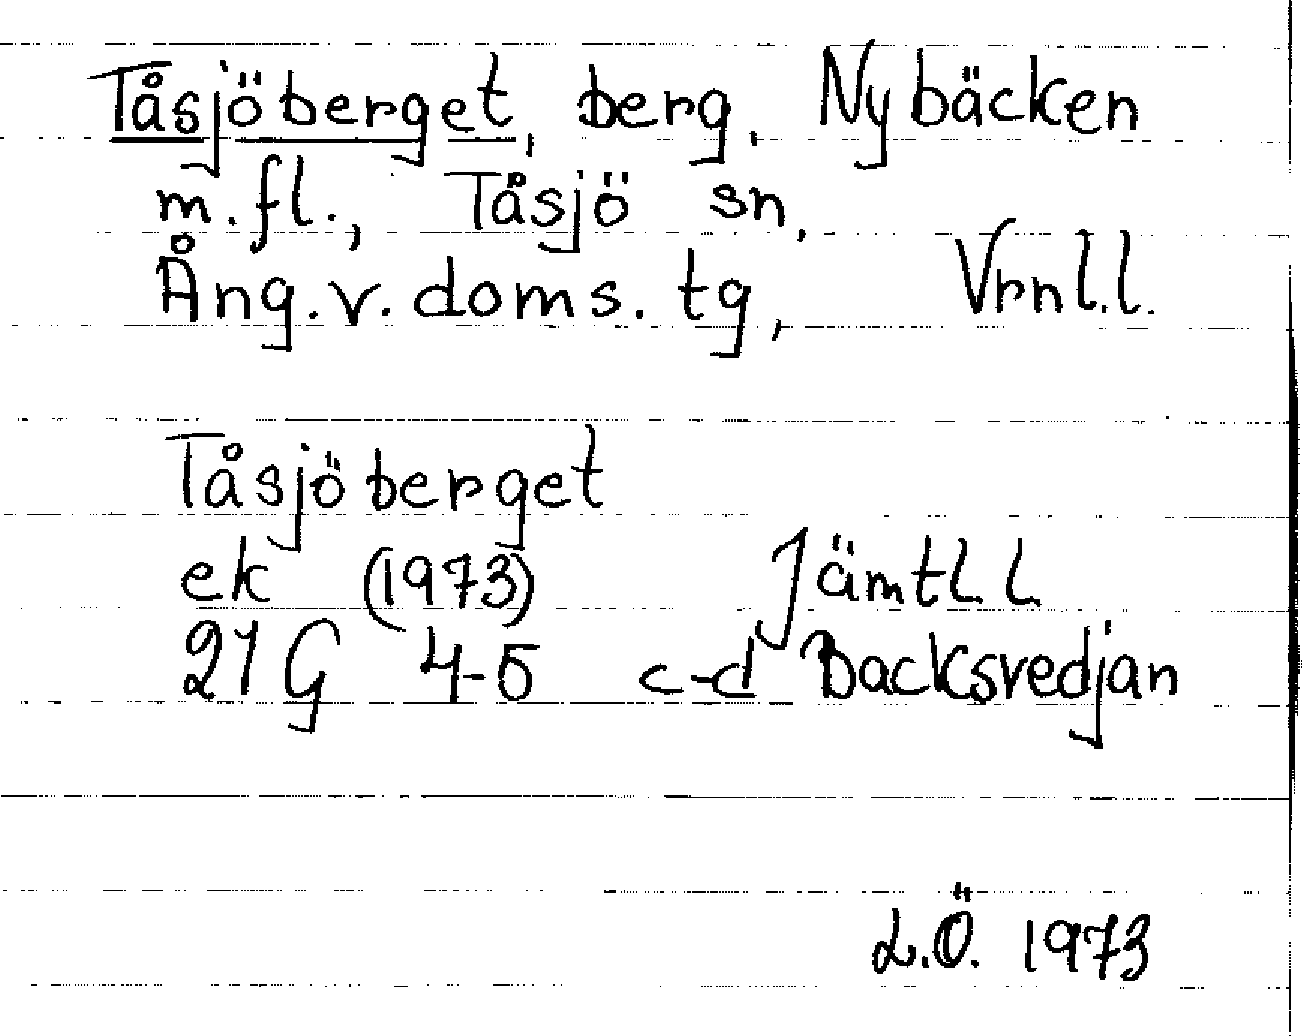 Tåsjöberget, berg, Nybäcken
m.fl., Tåsjö sn,
Ång.v.doms.tg, Vrnl.l.
Tåsjöberget
ek (1973) Jämtl.l.
21G 4-5 c-d Backsvedjan
L.Ö. 1973